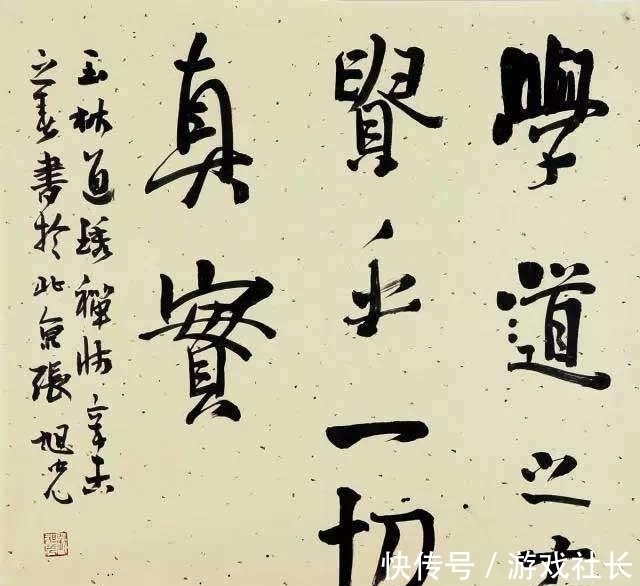 學道之
覺乎一切
真實
玉林通琇禪師辛
之春書於北京張旭光
快传号 / 游戏社长